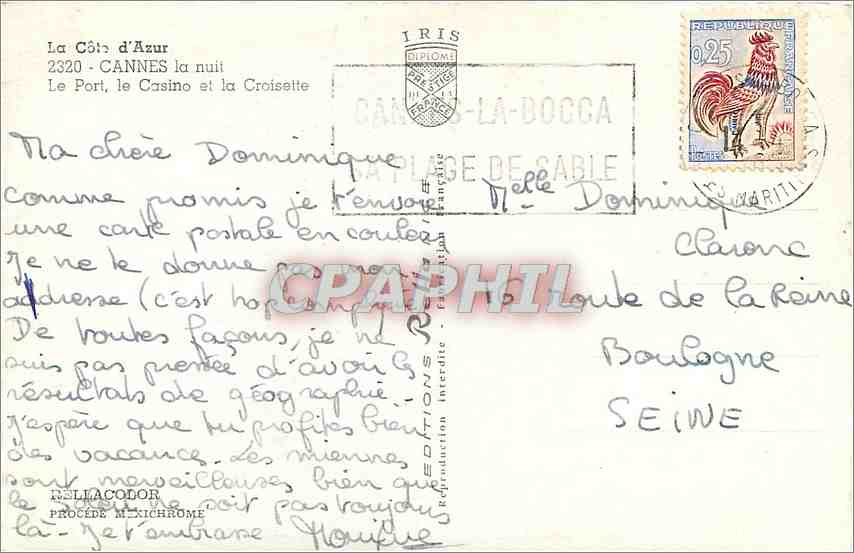 La Côte d'Azur
2320 - CANNES la nuit
Le Port, le Casino et la Croisette
IRIS
DIPLOME
PRESTIGE
FRANCE
CANNES-LA-BOCCA
SA PLAGE DE SABLE
REPUBLIQUE FRANÇAISE
0,25
MARITIMES
Ma chère Dominique
comme promis je t'envoie
une carte postale en couleur
Je ne te donne pas mon
adresse (c'est trop compliqué)
De toutes façons, je ne
suis pas pressée d'avoir les
résultats de géographie.
J'espère que tu profites bien
des vacances. Les miennes
sont merveilleuses bien que
le soleil ne soit pas toujours
là - Je t'embrasse Monique
RELLACOLOR
PROCÉDÉ MEXICHROME
EDITIONS Rella
Reproduction interdite - Fabrication Française
CPAPHIL
Melle Dominique
16 route de la Reine
Boulogne
SEINE